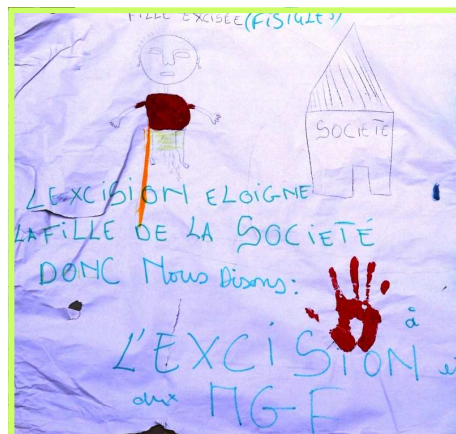 FILLE EXCISÉE (FISTULES)
SOCIETÉ
L'EXCISION ELOIGNE
LA FILLE DE LA SOCIETÉ
DONC Nous Disons:
à
L'EXCISION et
aux MGF